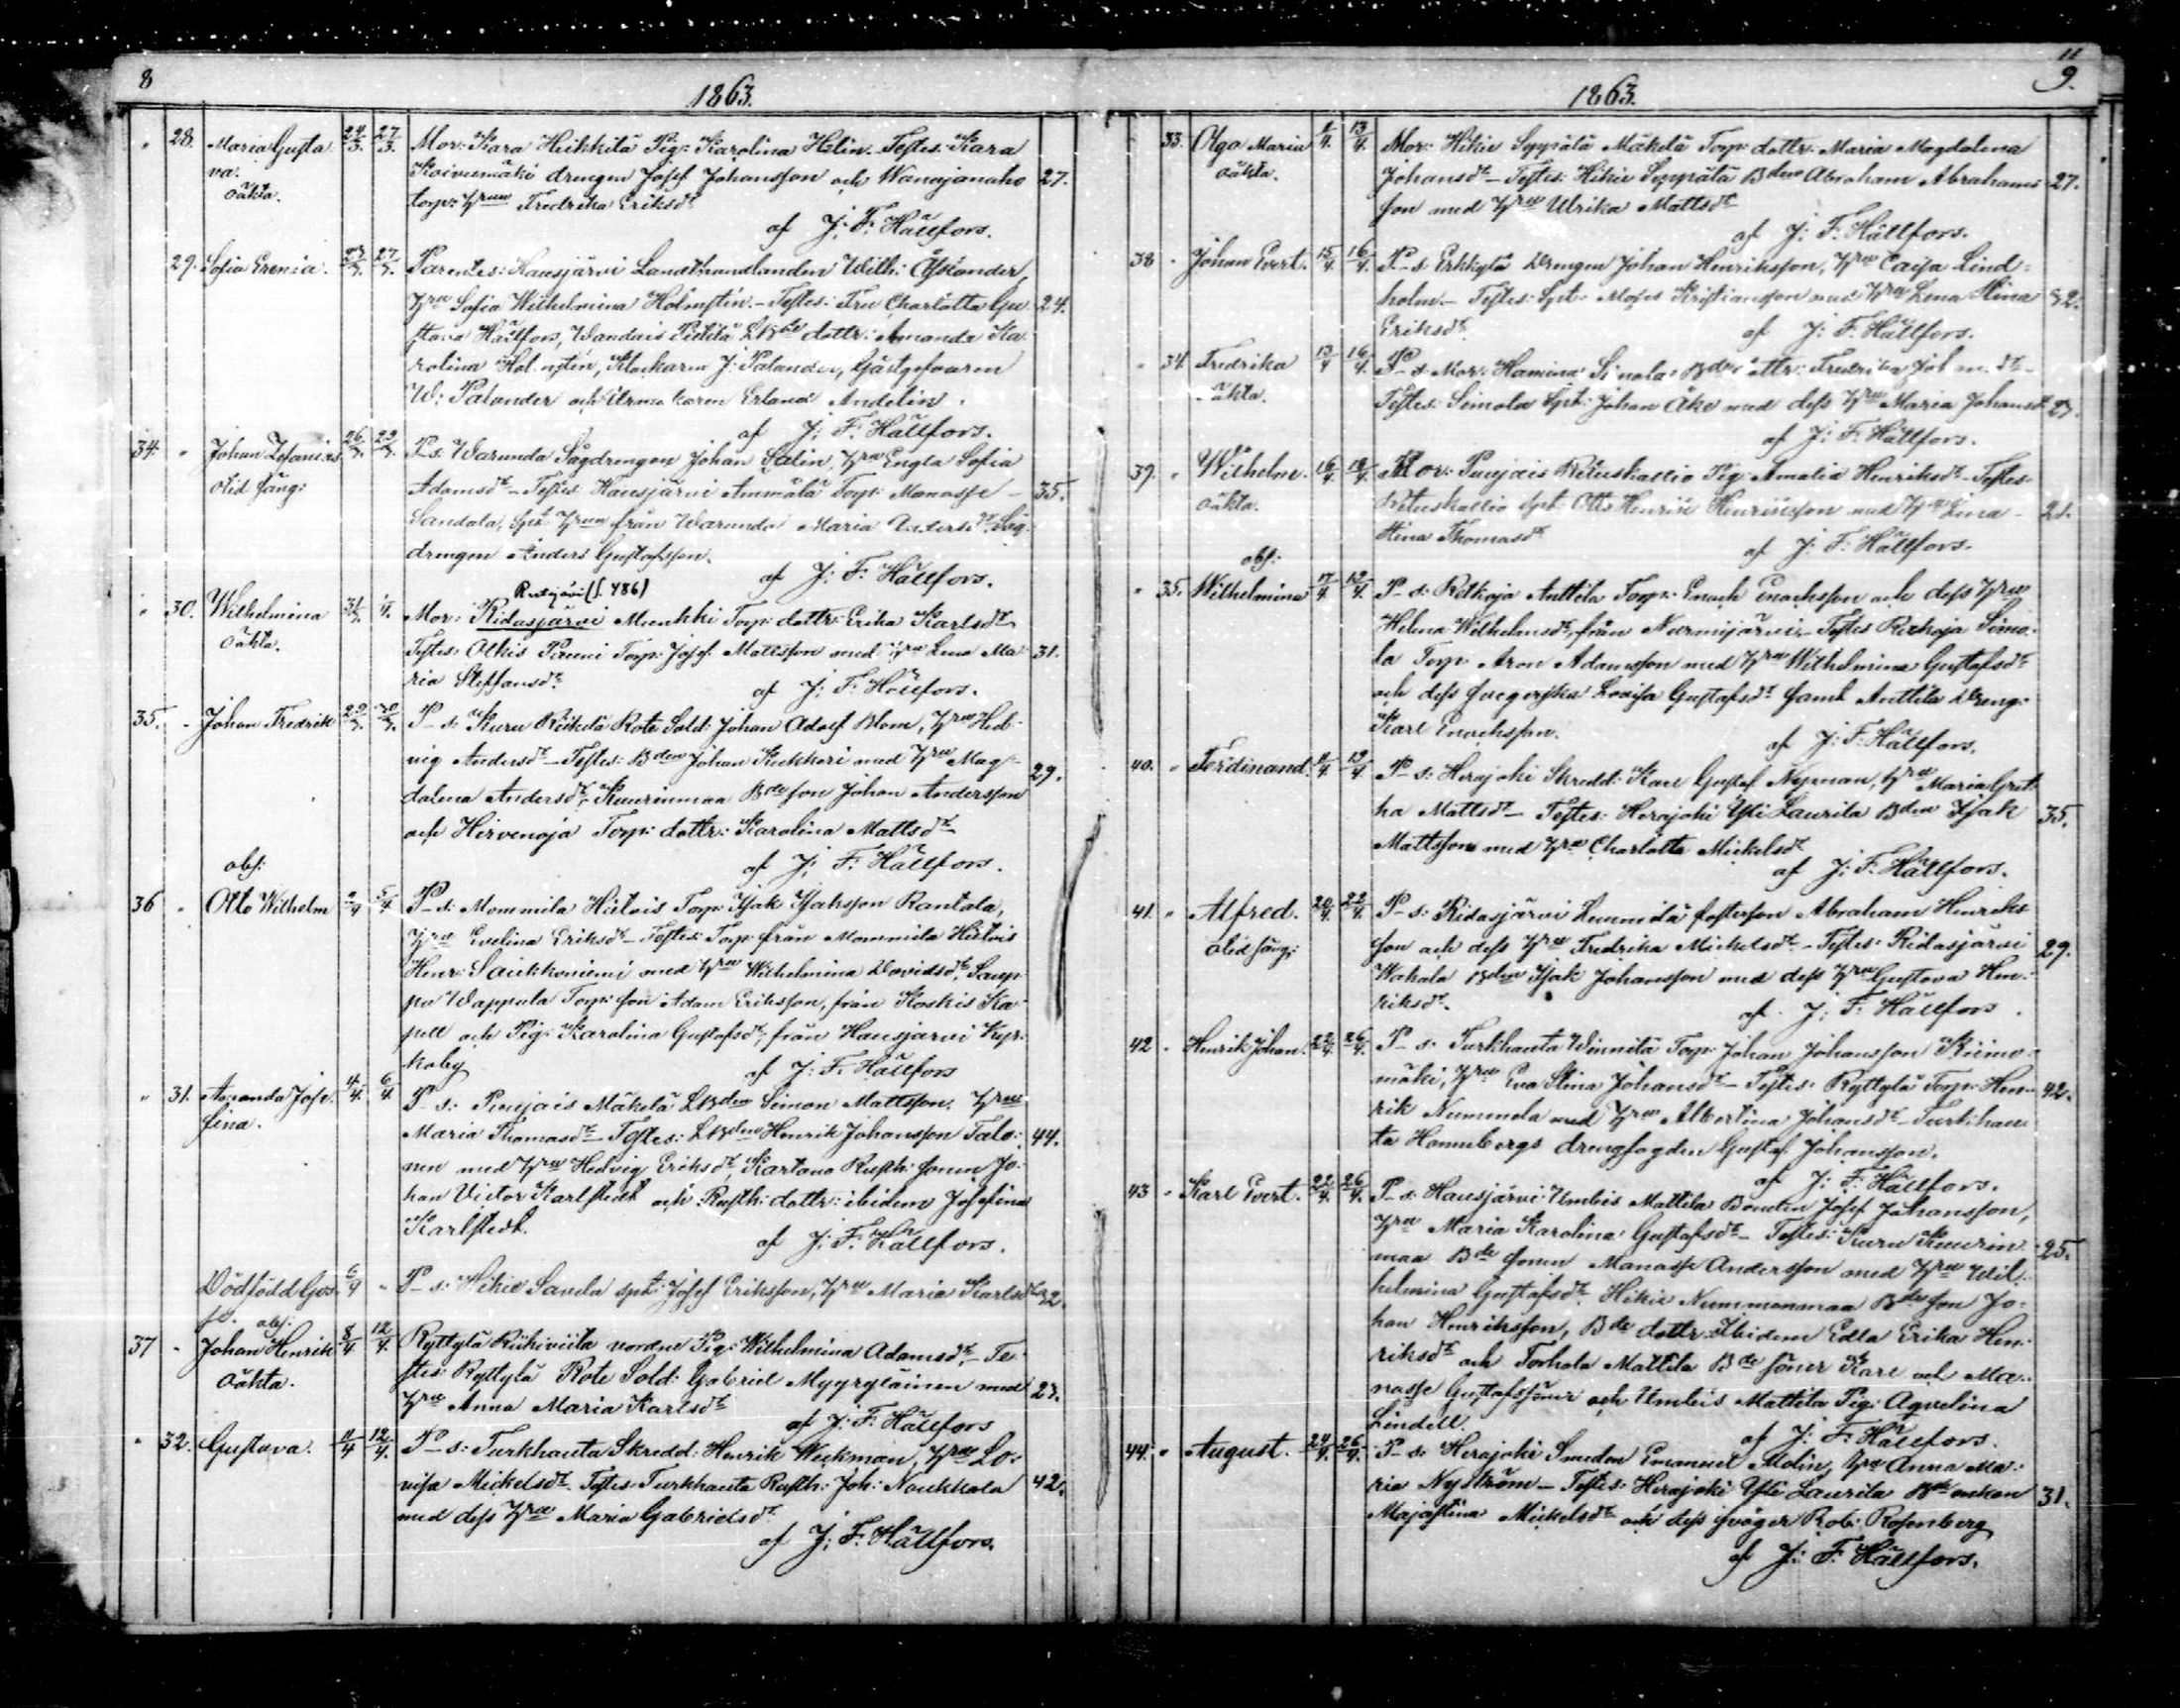 8
1863.
28. Maria Gusta 24/3. 27/3. Mor: Kara Heikkilä Pig: Karolina Helin. Testes: Kara
va. Koivumäki drengen Josef Johansson och Wanajanaho 27.
oäkta. torp: hrun Fredrika Eriksdr
af J: F: Hällfors.
29. Sofia Erenia. 27/3. Parentes: Hausjärvi Landthandlanden Wilh:
hru Sofia Wilhelmina Holmstén. Testes: Fru Charlotta Gu 24.
stava Hällfors, Wandais Pietilä dottr: Amanda Ka
rolina Holmstén, Klockaren J: Palander, Gästgefvaren
W: Palander och Erland Andelin.
af J: F: Hällfors.
34. " Johan Zefanias 26/3. 29/3. P–s: Warunda Sågdrengen Johan Salin, hru Engla Sofia
olid säng: Adamsdr – Testes: Hausjärvi Ammälä Torp: Manasse – 35.
Sandala, hrun från Warunda Maria Andersdr Såg:
drengen Anders Gustafsson.
af J: F: Hällfors.
(S. 486)
" 30. Wilhelmina 31/3. Mor: Ridasjärvi Munkki Torp: dottr: Erika Karlsdr
oäkta. Testes: Olkis Torp: Josef Mattsson med hru Lena Ma 31.
ria Steffansdr
af J: F: Hällfors.
35. " Johan Fredrik 29/3. 30/3. P–s: Kuru Rote Sold: Johan Adolf Blom, hru Hed
vig Andersdr – Testes: Bden Johan med hru Mag
dalena Andersdr, Kuurinmaa Bde son Johan Andersson 29.
och Hirvenoja Torp: dottr: Karolina Mattsdr
af J: F: Hällfors.
obs:
36 " Otto Wilhelm 5/4 P–s: Mommila Hietois Torp: Isak Isaksson Rantala,
hru Evelina Eriksdr – Testes: Torp: från Mommila Hietois
Henr: Saukkoniemi med hru Wilhelmina Davidsdr,
Wappula Torp: son Adam Eriksson, från Koskis Ka
pell och Pig: Karolina Gustafsdr, från Hausjärvi Kyr
koby
af J: F: Hällfors
" 31. Amanda Jose 4/4. 6/4. P–s: Puujais Mäkelä Simon Mattsson, hru
fina. Maria Thomasdr – Testes: Henrik Johansson Talo: 44.
nen med hru Hedvig Eriksdr, Kartano Rusth: sonen Jo:
han Victor Karlstedt och Rusth: dottr: ibidem Josefina
Karlstedt.
af J: F: Hällfors.
Dödfödd Gos 6/4 " P–s: Hikie Sanda Josef Eriksson, hru Maria Karlsdr 32.
se. obs:
37 " Johan Henrik 8/4 12/4. Ryttylä Riihiviita Pig: Wilhelmina Adamsdr, – Te
oäkta. stes: Ryttylä Rote Sold: Gabriel Myyryläinen med 23.
hru Anna Maria Karlsdr
af J: F: Hällfors
" 32. Gustava. 11/4 12/4. P–s: Turkhauta Skredd: Henrik Weckman, hru Lo:
visa Mickelsdr. Testes: Turkhauta Rusth: Joh: Naukkala 42.
med dess hru Maria Gabrielsdr
af J: F: Hällfors.
11
9.
1863.
33. Olga Maria 13/4 Mor: Hikie Seppälä Mäkelä Torp: dottr: Maria Magdalena
oäkta. Johansdr – Testes: Hikie Seppälä Bden Abraham Abrahams 27.
son med hru Ulrika Mattsdr
af J: F: Hällfors.
38 " Johan Evert. 15/4 16/4. P–s: Erkkylä Drengen Johan Henriksson, hru Caisa Lind:
holm – Testes: Moses Kristiansson med hru Lena Stina 32.
Eriksdr
af J: F: Hällfors.
" 34. Fredrika 13/4 16/4. P–s: Mor: Hamina Simola dottr: Fredrika
oäkta. Testes: Simola Johan Åke med dess hru Maria Johansdr
af J: F: Hällfors.
39. " Wilhelm. 16/4 18/4. Mor: Puujais Pig: Amalia Henriksdr – Testes
oäkta. Otto Henrik Henriksson med hru Lena 21.
Stina Thomasdr
af J: F: Hällfors.
obs:
" 35. Wilhelmina 17/4 19/4. P–s: Anttila Torp: Enoch Enochsson och dess hru
Helena Wilhelmsdr, från Nurmijärvi. Testes Simo:
la Torp: Aron Adamsson med hru Wilhelmina Gustafsdr
och dess Lovisa Gustafsdr samt Anttila Dreng:
Karl Enochsson.
af J: F: Hällfors.
40. " Ferdinand. 19/4 P–s: Herajoki Skredd: Karl Gustaf Nyman, hru Maria Gret
ha Mattsdr – Testes: Herajoki Yli Laurila Bden Isak 35.
Mattsson med hru Charlotta Mickelsdr
af J: F: Hällfors.
41. " Alfred. 20/4. 22/4. P–s: Ridasjärvi fosterson Abraham Henriks
olid säng: son och dess hru Fredrika Mickelsdr – Testes: Ridasjärvi 29.
Wahala Bden Isak Johansson med dess hru Gustava Hen:
riksdr.
af J: F: Hällfors.
42 " Henrik Johan. 22/4. 26/4. P–s: Turkhauta Winnilä Torp: Johan Johansson
mäki, hru Eva Stina Johansdr – Testes: Ryttylä Torp: Hen 42.
rik Nummela med hru Albertina Johansdr – Turkhau
ta Hannubergs drengfogden Gustaf Johansson.
af J: F: Hällfors.
43 " Karl Evert. 22/4. 26/4. P–s: Hausjärvi Umbis Mattila Bonden Josef Johansson,
hru Maria Karolina Gustafsdr – Testes: Kuru Kuurin 25.
maa Bde sonen Manasse Andersson med hru Wil:
helmina Gustafsdr, Hikie Nummenmaa Bde son Jo:
han Henriksson, Bde dottr: Ibidem Edla Erika Hen:
riksdr och Torhola Mattila Bde söner Karl och Ma:
nasse Gustafssöner och Umbis Mattila Pig: Aqvelina
Lindell.
af J: F: Hällfors.
44. " August. 24/4. 26/4. P–s: Herajoki Smeden Emanuel Malin, hru Anna Ma:
ria Nyström – Testes: Herajoki Yli Laurila Bde enkan 31.
Majastina Mickelsdr och dess svåger Rob: Rosenberg
af J: F: Hällfors.